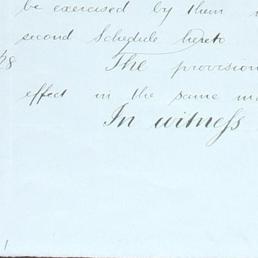 be exercised by them
second Schedule hereto
The provision
effect in the same
In witness